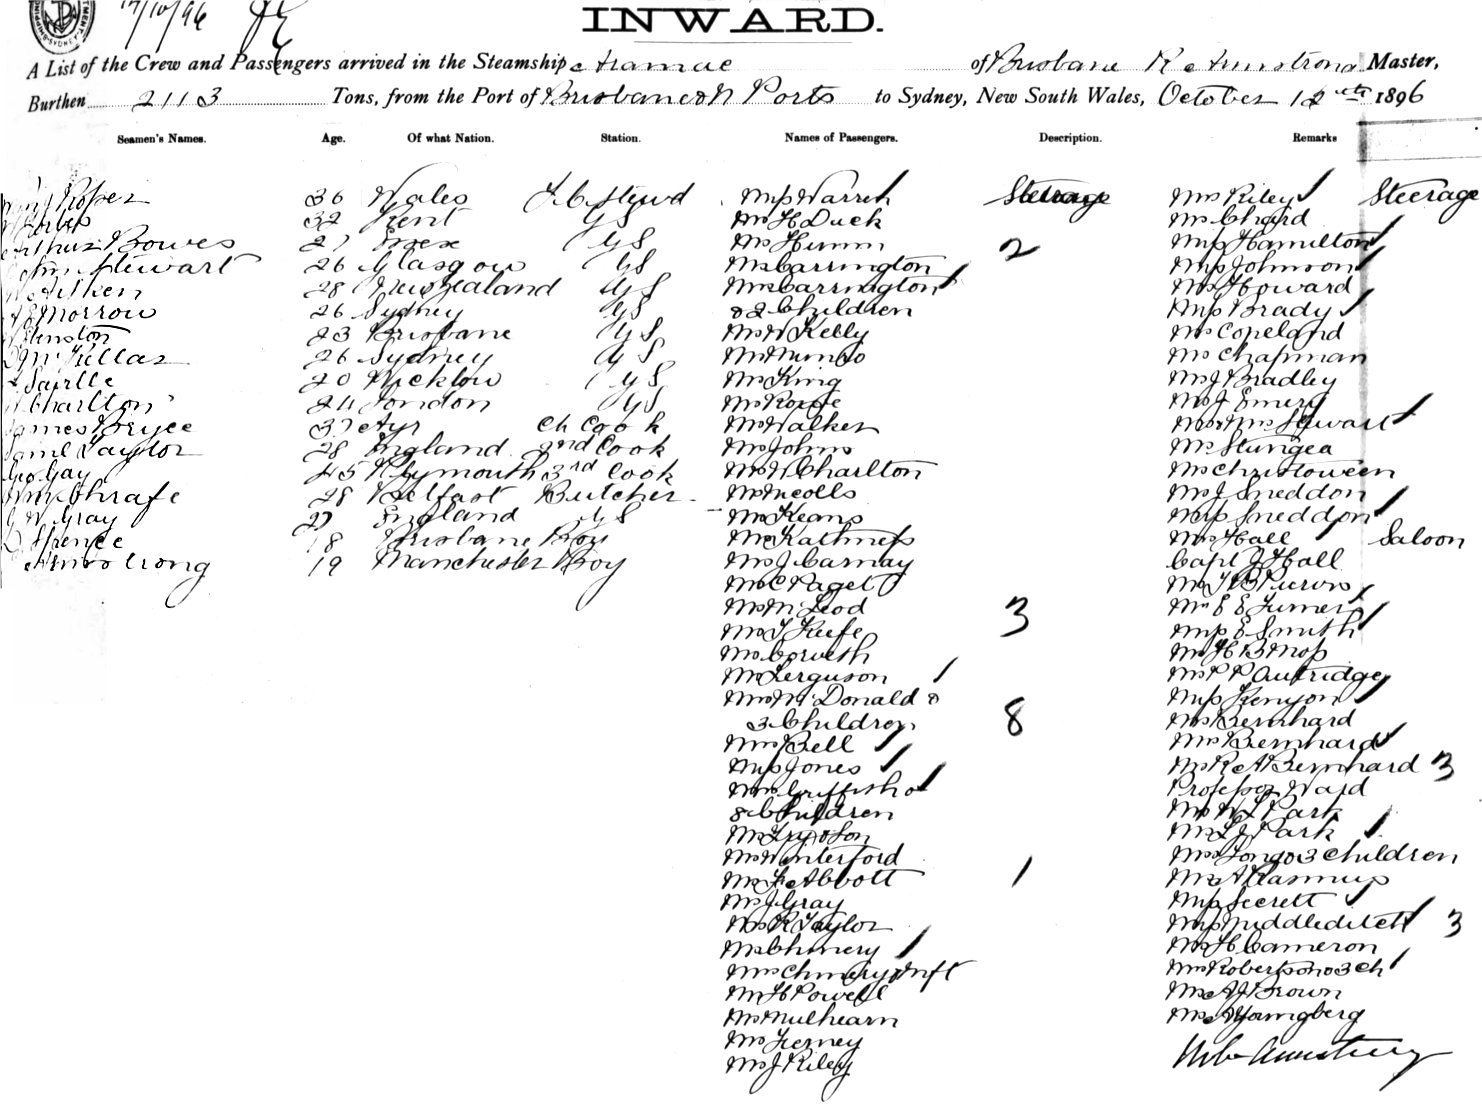 17/10/96
INWARD.
A List of the Crew and Passengers arrived in the Steamship Aramac of Brisbane R Armstrong Master,
Burthen 2113 Tons, from the Port of Brisbane & N Ports to Sydney, New South Wales, October 12th 1896
Seamen's Names. Age. Of what Nation. Station. Names of Passengers. Description. Remarks
Roper 36 Wales F.C. Stewd
32 Kent GS
Arthur Bowes 27 Essex GS
Stewart 26 Glasgow GS
Aitken 28 New Zealand GS
Morrow 26 Sydney GS
23 Brisbane GS
26 Sydney GS
20 Wicklow GS
Charlton 24 London GS
James Bryce 37 Ayr Ch Cook
Saml Taylor 28 England 2nd Cook
Geo Gay 45 Plymouth 3rd Cook
28 Belfast Butcher
J W Gray 27 England GS
Spence 18 Brisbane Boy
Armstrong 19 Manchester Boy
Miss Warren Steerage
Mr H Duck
Mr Hunn 2
Mr Carrington
Mrs Carrington
& 2 Children
Mr W Kelly
Mr Nimbo
Mr King
Mr Rouse
Mr Walker
Mr Johns
Mr W Charlton
Mr Nicolls
Mr Keans
Mr J Carnay
Mr C Paget
Mr McLeod 3
Mr T Keefe
Mr Corveth
Mr Ferguson
Mrs McDonald &
3 Children 8
Mrs Bell
Miss Jones
Mrs Griffith &
8 Children
Mr Winterford
Mr F Abbott 1
Mr J Gray
Mr R Taylor
Mr Chinery
Mrs Chinery & Inft
Mr H Powell
Mr Mulhearn
Mr Tierney
Mr J Riley
Mrs Riley Steerage
Mr Chard
Miss Hamilton
Miss Johnson
Mr Howard
Miss Brady
Mr Copeland
Mr Chapman
Mr J Bradley
Mr J Emery
Mr & Mrs Stewart
Mr Sturgea
Mr Christoween
Mr J Sneddon
Miss Sneddon
Mr Hall Saloon
Capt J Hall
Mr T B Purvis
Mrs E E Turner
Miss E Smith
Mr H B Moss
Mr P P Outridge
Miss Kenyon
Mr Bernhard
Mrs Bernhard
Mr R A Bernhard 3
Professor Ward
Mr W L Park
Mr L J Park
Mrs Long & 3 Children
Mr A Rasmuss
Miss Secrett
Miss Middleditch 3
Mr H Cameron
Mrs Robertson & 3 Ch
Mr A J Brown
Mr A Youngberg
Armstrong